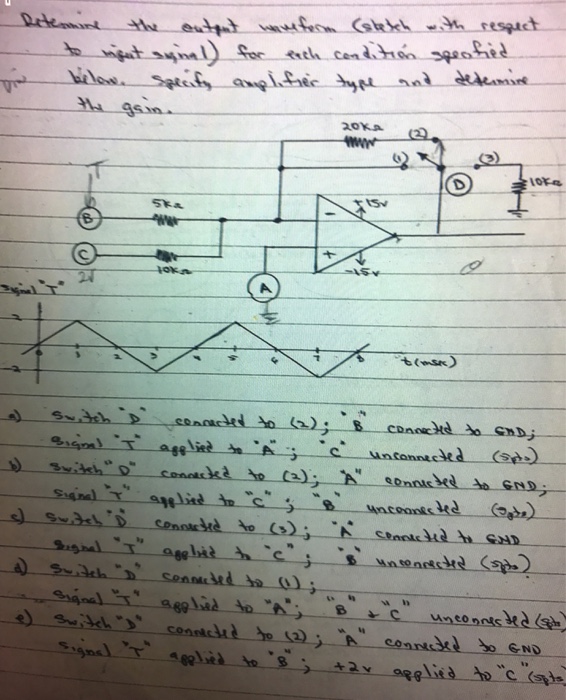 Determine the output waveform (sketch with respect
to input signal) for each condition specified
below. Specify amplifier type and determine
the gain.
20KΩ (2)
(1) (3)
D 10KΩ
T
5KΩ +15V
B -
C +
10KΩ -15V
2V
A
Signal "T"
2
1 2 3 4 5 6 7 8 t(msec)
-2
a) Switch "D" connected to (2); "B" connected to GND;
Signal "T" applied to "A"; "C" unconnected (5pts)
b) Switch "D" connected to (2); "A" connected to GND;
Signal "T" applied to "C"; "B" unconnected (5pts)
c) Switch "D" connected to (3); "A" connected to GND
Signal "T" applied to "C"; "B" unconnected (5pts)
d) Switch "D" connected to (1);
Signal "T" applied to "A"; "B" + "C" unconnected (5pts)
e) Switch "D" connected to (2); "A" connected to GND
Signal "T" applied to "B"; +2V applied to "C" (5pts)